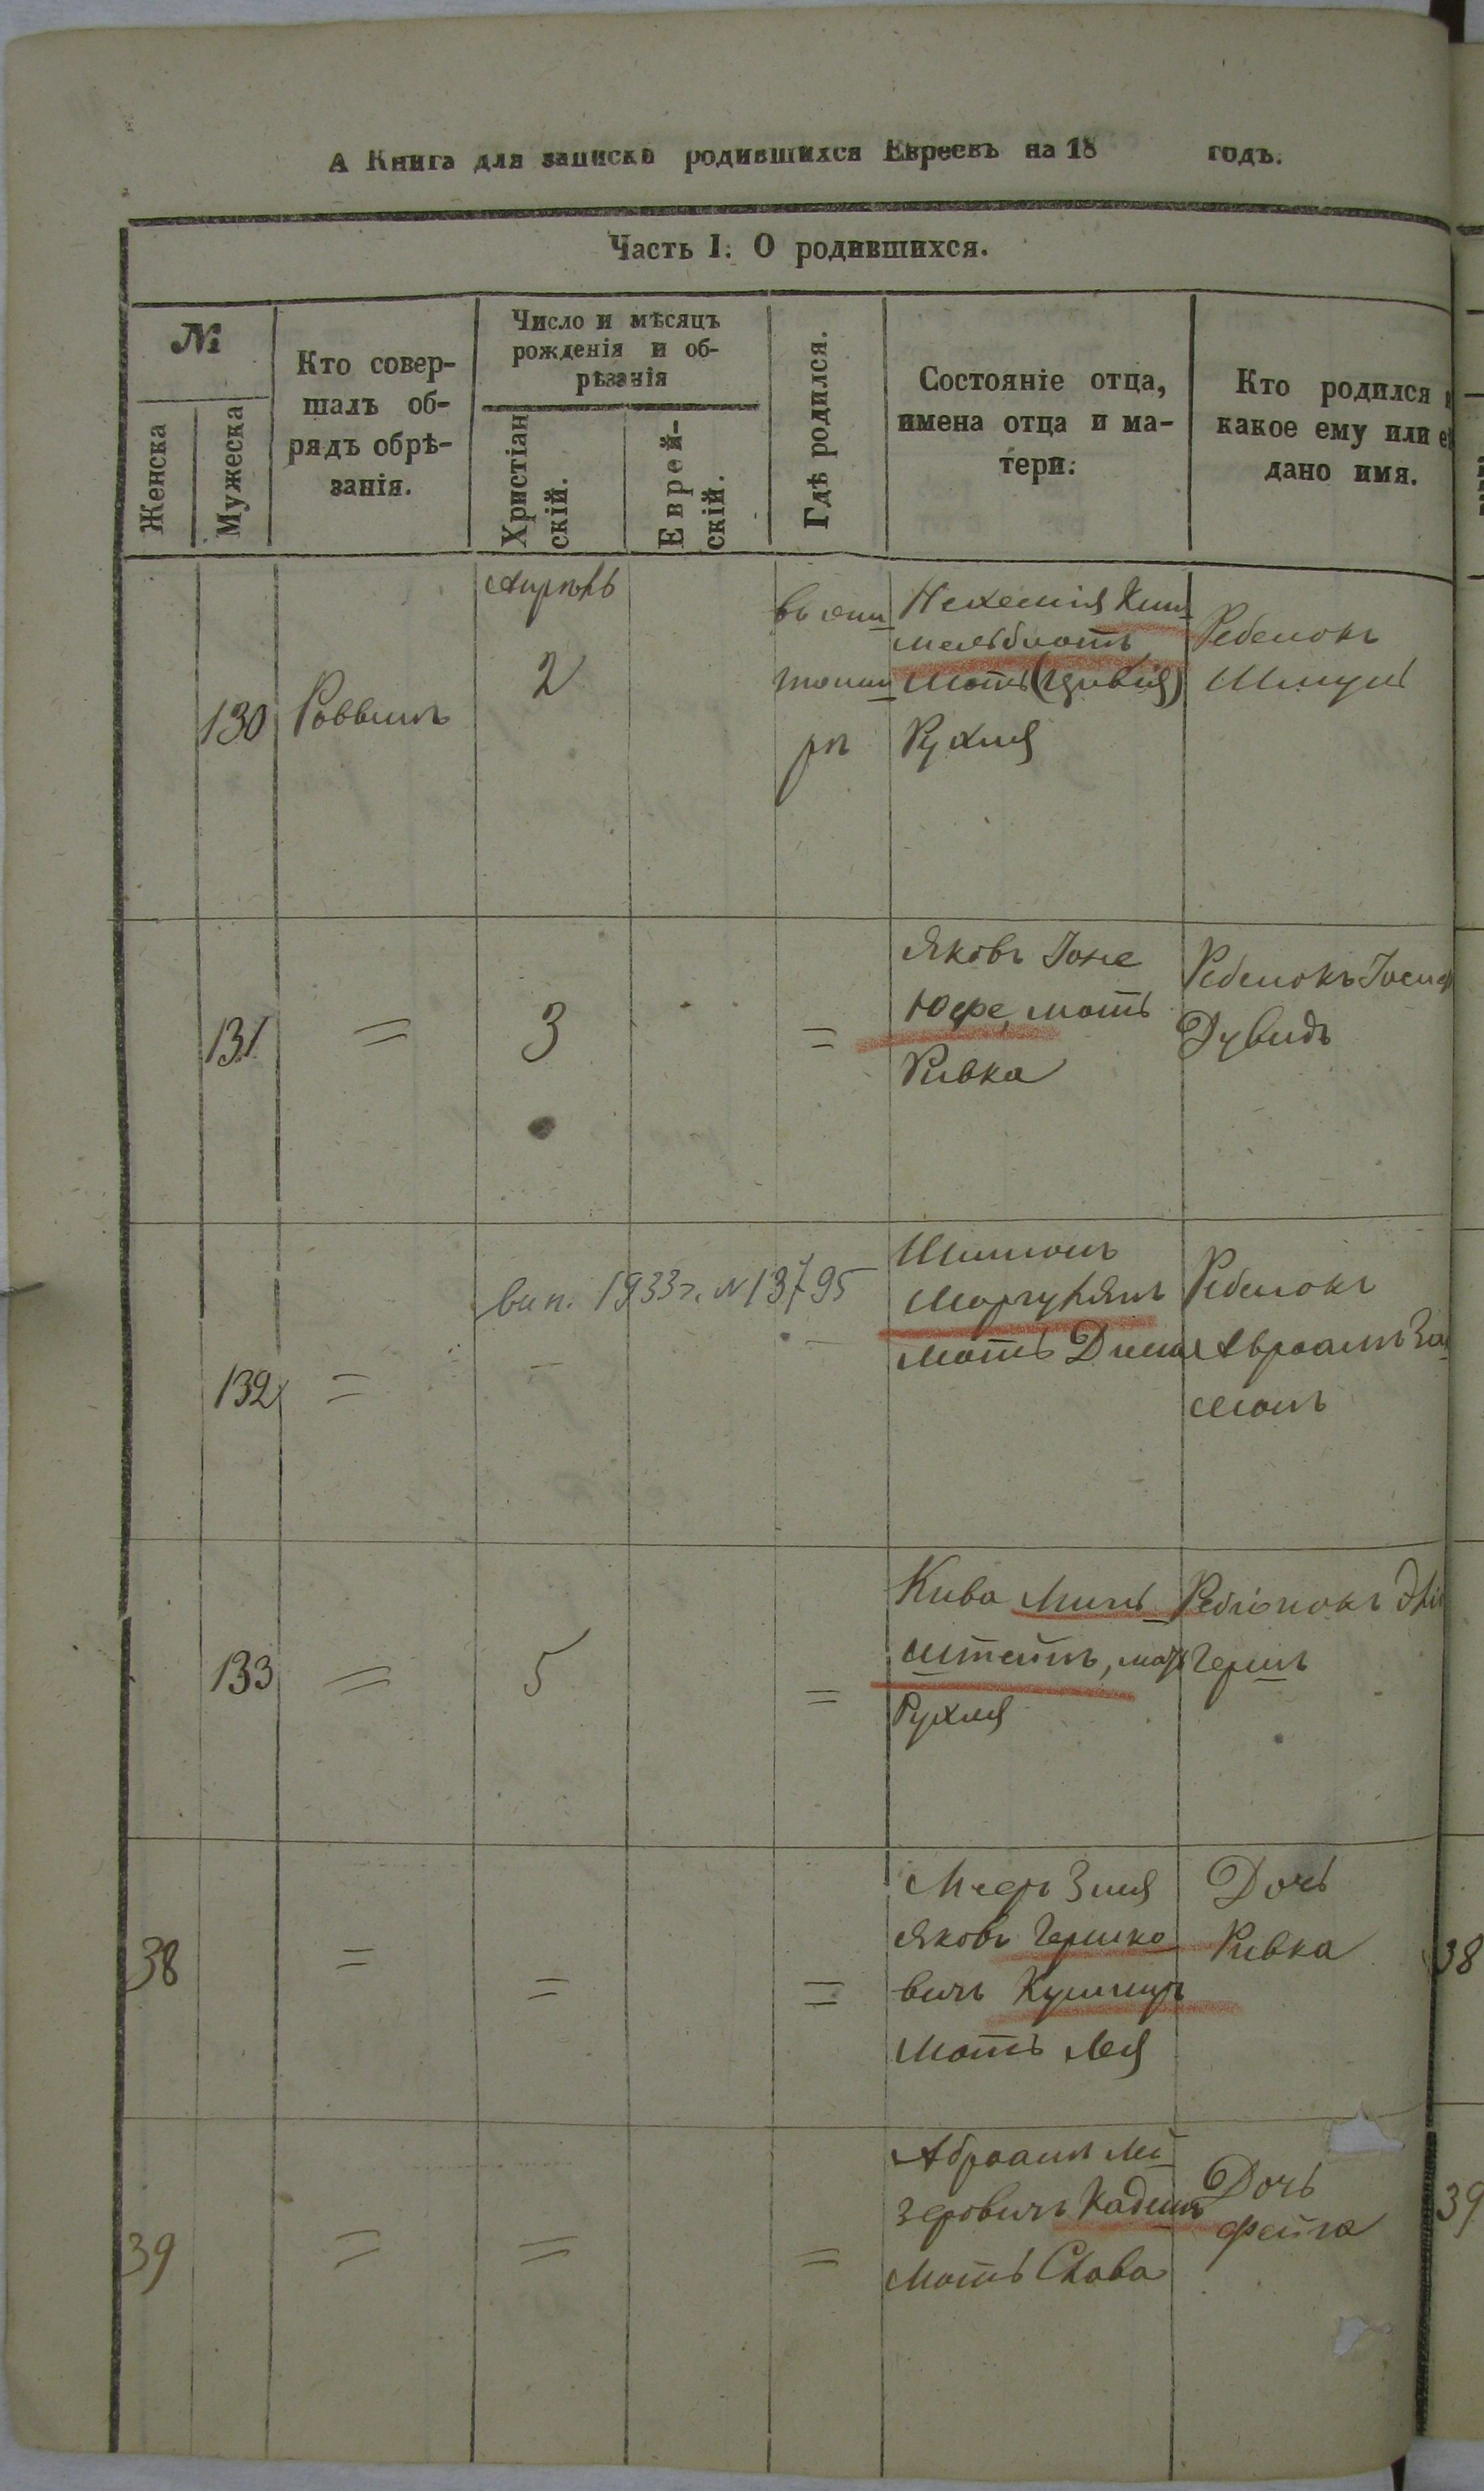 А Книга для записки родившихся Евреевъ на 18 годъ.
Часть I. О родившихся.
№
Женска
Мужеска
Кто совер-
шалъ об-
рядъ обрѣ-
занія.
Число и мѣсяцъ
рожденія и об-
рѣзанія
Христіан
скій.
Еврей-
скій.
Гдѣ родился.
Состояніе отца,
имена отца и ма-
тери.
Кто родился
какое ему или
дано имя.
130
Раввинъ
Апрѣль
2
Нехемія
мать (Цивія)
Рухля
Ребенокъ
Шмуль
131
=
3
=
Яковъ Іоне
Юфе, мать
Ривка
Ребенокъ Іосиф
Дувидъ
132
=
вип. 1933 г. № 13795
Шимонъ
Маргулянъ
мать Дина
Ребенокъ
Авраамъ За
лманъ
133
=
5
=
Кива Миль
штейнъ, мать
Рухля
Ребіонокъ Элі
Гершъ
38
=
=
=
Мееръ Зися
Яковъ Гершко
вичъ
мать Лея
Дочь
Ривка
38
39
=
=
=
Абраамъ Лей
зеровичъ Кадишъ
мать Слава
Дочь
Фейга
39